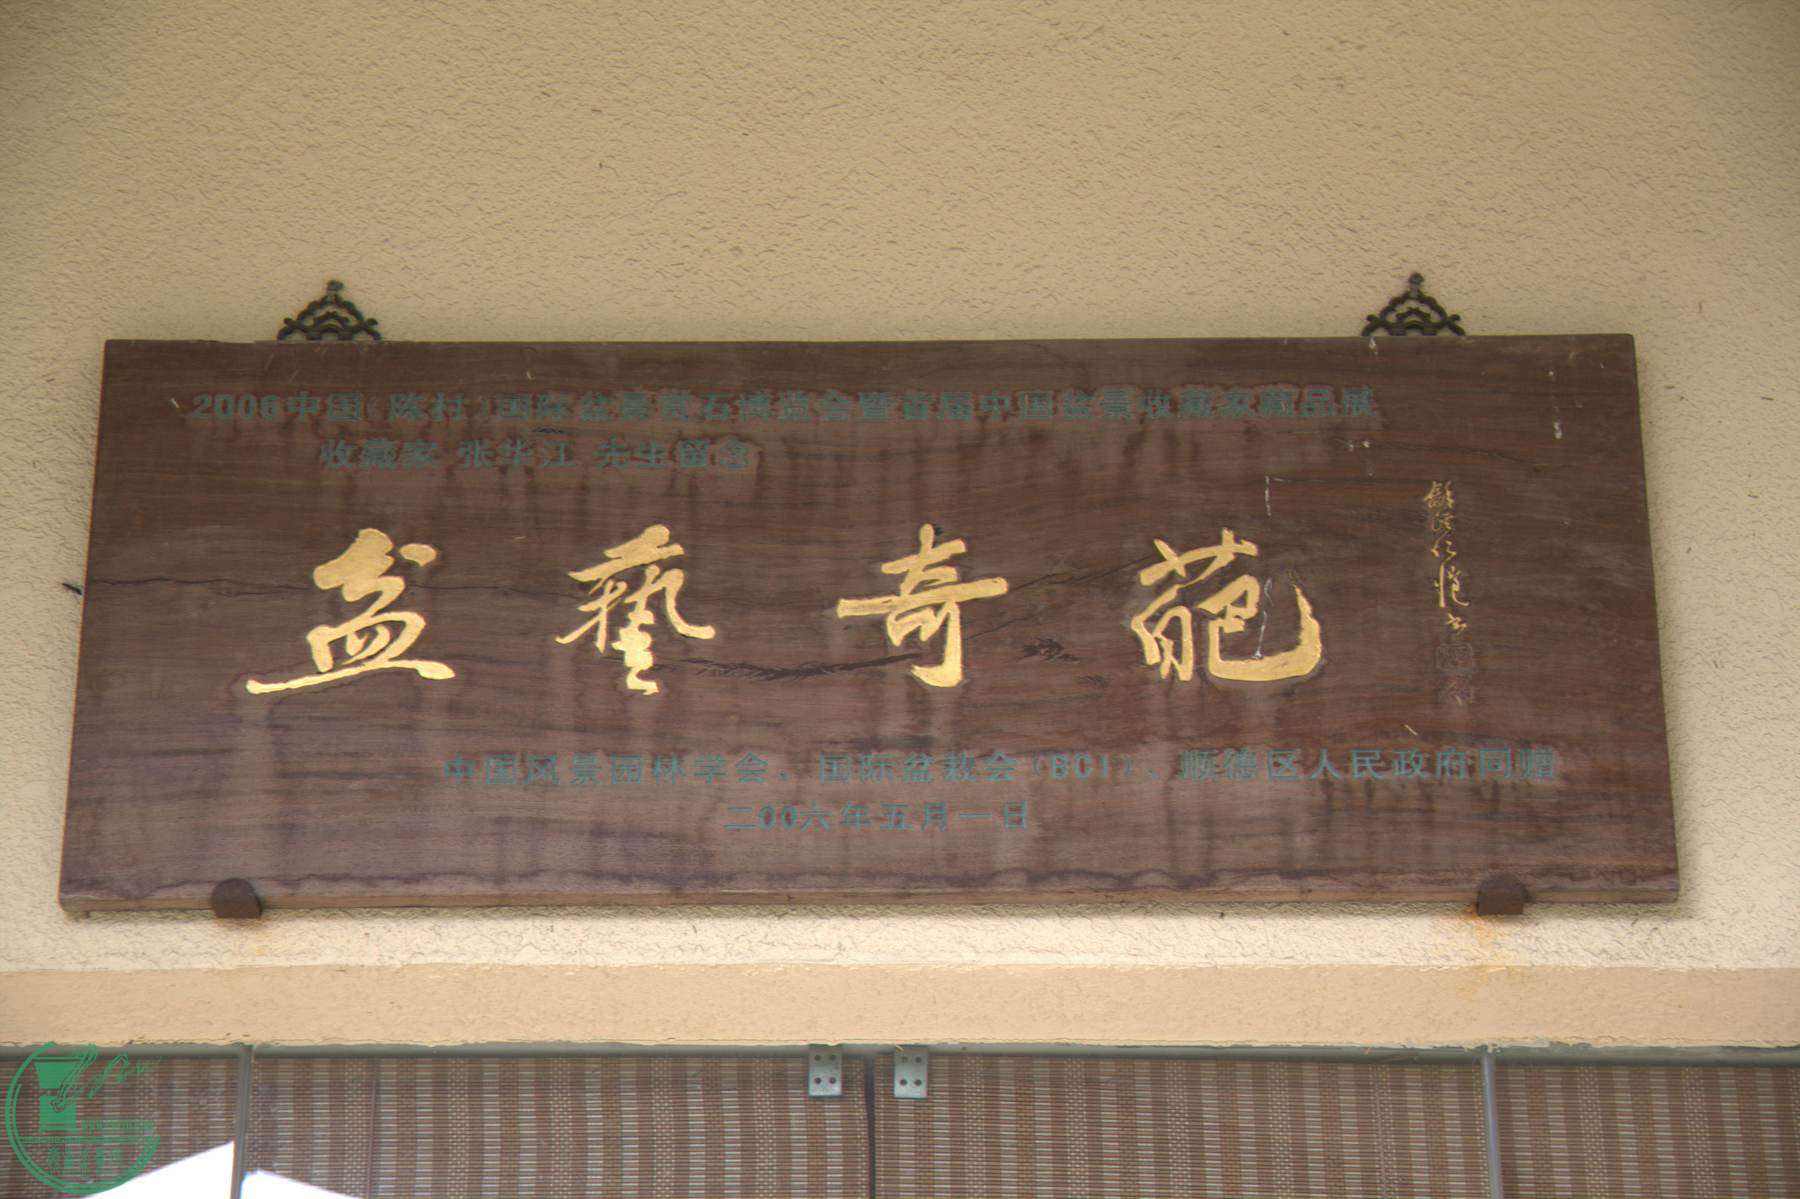 2006中国(陈村)国际盆景赏石博览会暨首届中国盆景收藏家藏品展
收藏家 张华江 先生留念
盆藝奇葩
中国风景园林学会、国际盆栽会(BCI)、顺德区人民政府同赠
二00六年五月一日